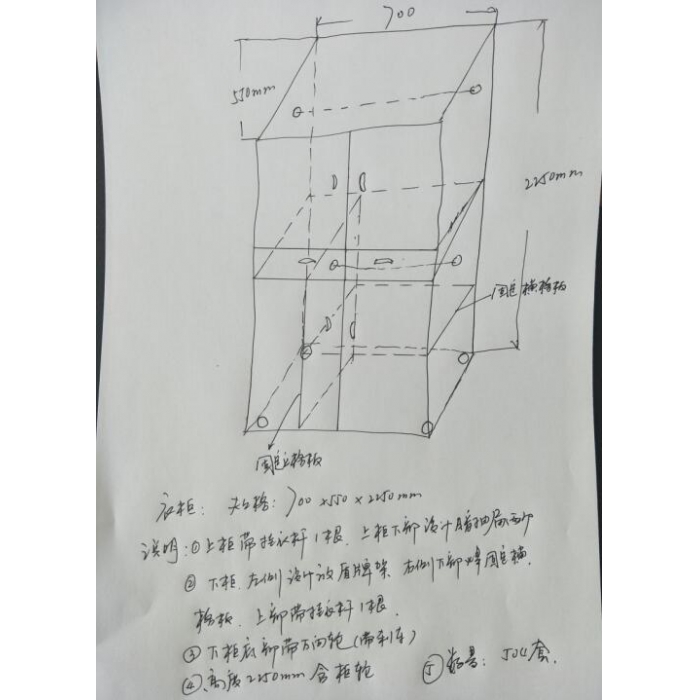 700
550mm
2250mm
固定横格板
固定立格板
衣柜: 规格: 700×550×2250mm
说明: ①上柜带挂衣杆1根、上柜下部设计暗抽屉两个
② 下柜、左侧设计放盾牌架、右侧下部焊固定横
格板、上部带挂衣杆1根、
③ 下柜底部带万向轮(带刹车)
④、高度2250mm 含柜轮
⑤ 数量: 504套.